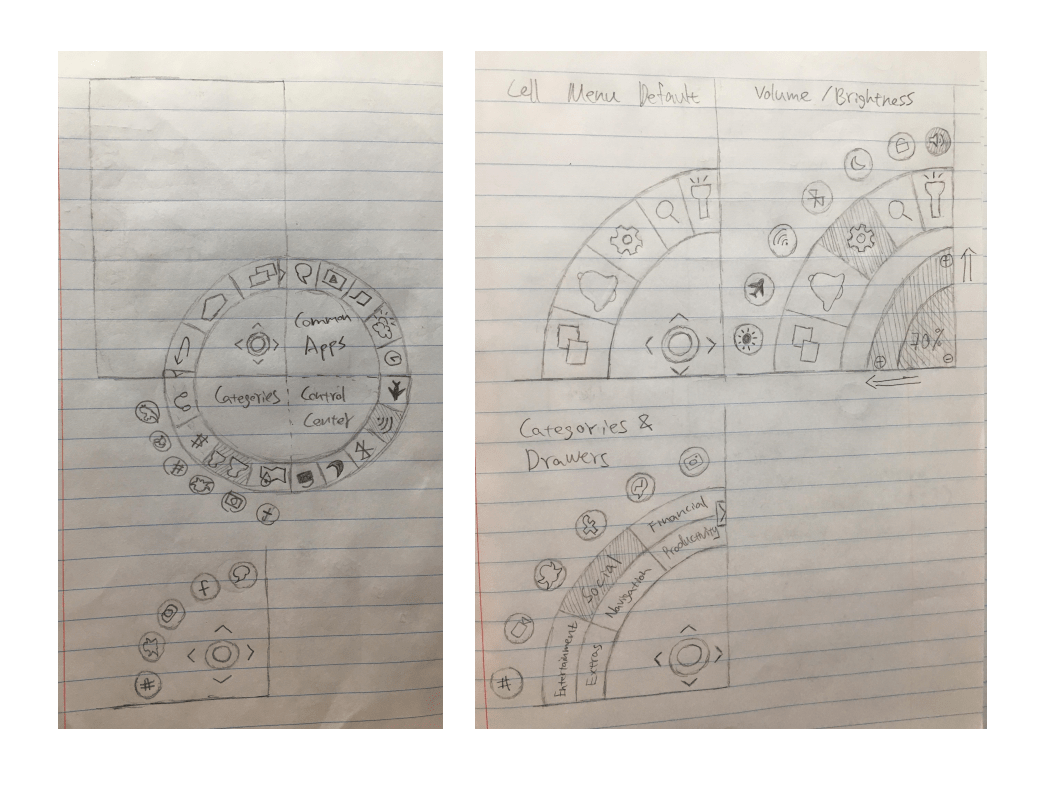 Common
Apps
Categories
Control
Center
#
#
f
f
#
Cell Menu Default
Volume / Brightness
70%
Categories &
Drawers
Financial
Productivity
Social
Navigation
Entertainment
Extras
#